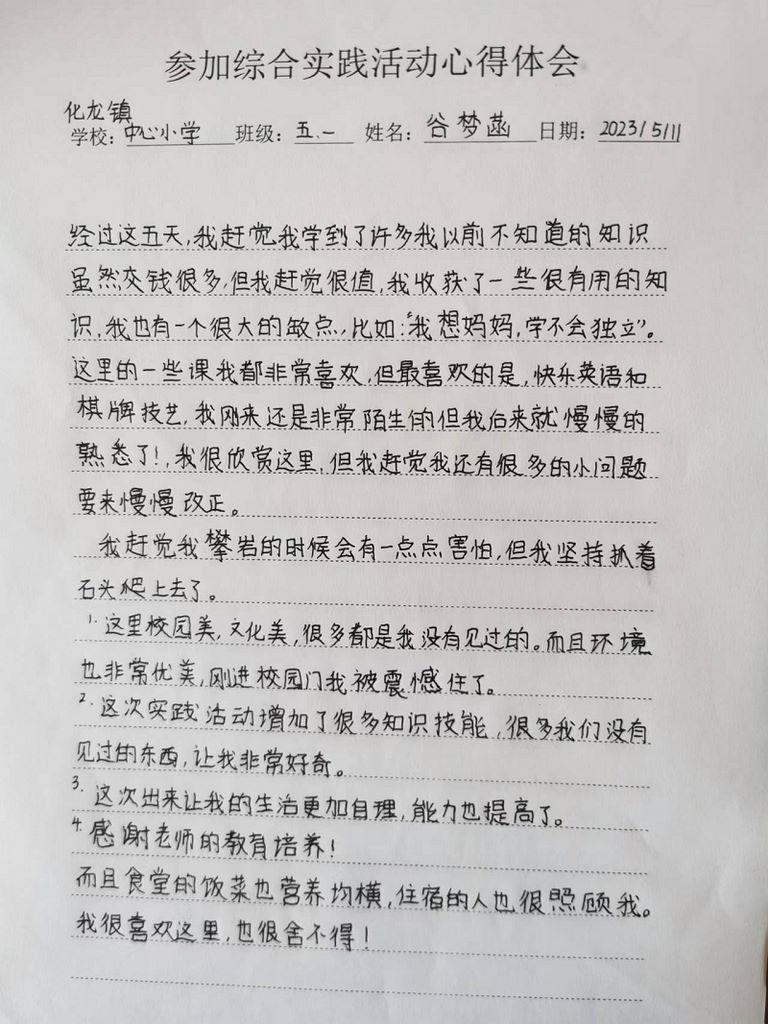 参加综合实践活动心得体会
化龙镇
学校：中心小学 班级：五.一 姓名：谷梦菡 日期：2023/5/11
经过这五天,我赶觉我学到了许多我以前不知道的知识
虽然交钱很多,但我赶觉很值,我收获了一些很有用的知
识,我也有一个很大的缺点,比如:“我想妈妈,学不会独立”。
这里的一些课我都非常喜欢,但最喜欢的是,快乐英语和
棋牌技艺,我刚来还是非常陌生的但我后来就慢慢的
熟悉了!,我很欣赏这里,但我赶觉我还有很多的小问题
要来慢慢改正。
我赶觉我攀岩的时候会有一点点害怕,但我坚持抓着
石头爬上去了。
1.这里校园美,文化美,很多都是我没有见过的。而且环境
也非常优美,刚进校园门我被震憾住了。
2.这次实践活动增加了很多知识技能,很多我们没有
见过的东西,让我非常好奇。
3.这次出来让我的生活更加自理,能力也提高了。
4.感谢老师的教育培养!
而且食堂的饭菜也营养均横,住宿的人也很照顾我。
我很喜欢这里,也很舍不得!